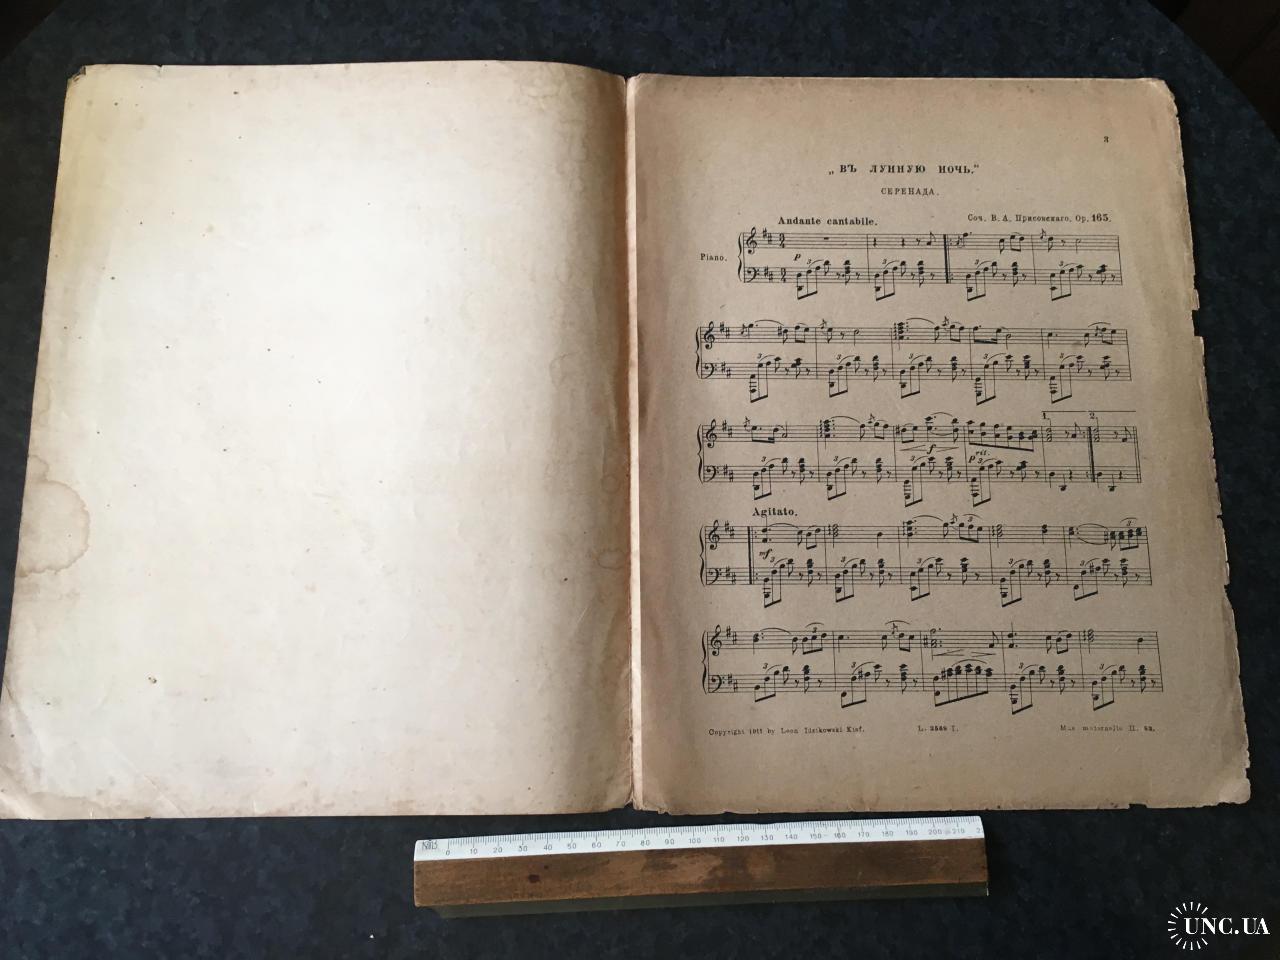 3
„ВЪ ЛУННУЮ НОЧЬ.“
СЕРЕНАДА.
Andante cantabile.
Соч. В. А. Присовскаго, Op. 165.
Piano.
p
f
p rit.
1.
2.
Agitato.
mf
Copyright 1911 by Leon Idzikowski Kief.
L. 2569 I.
10 20 30 40 50 60 70 80 90 100 110 120 130 140 150 160 170 180 190 200 210
UNC.UA